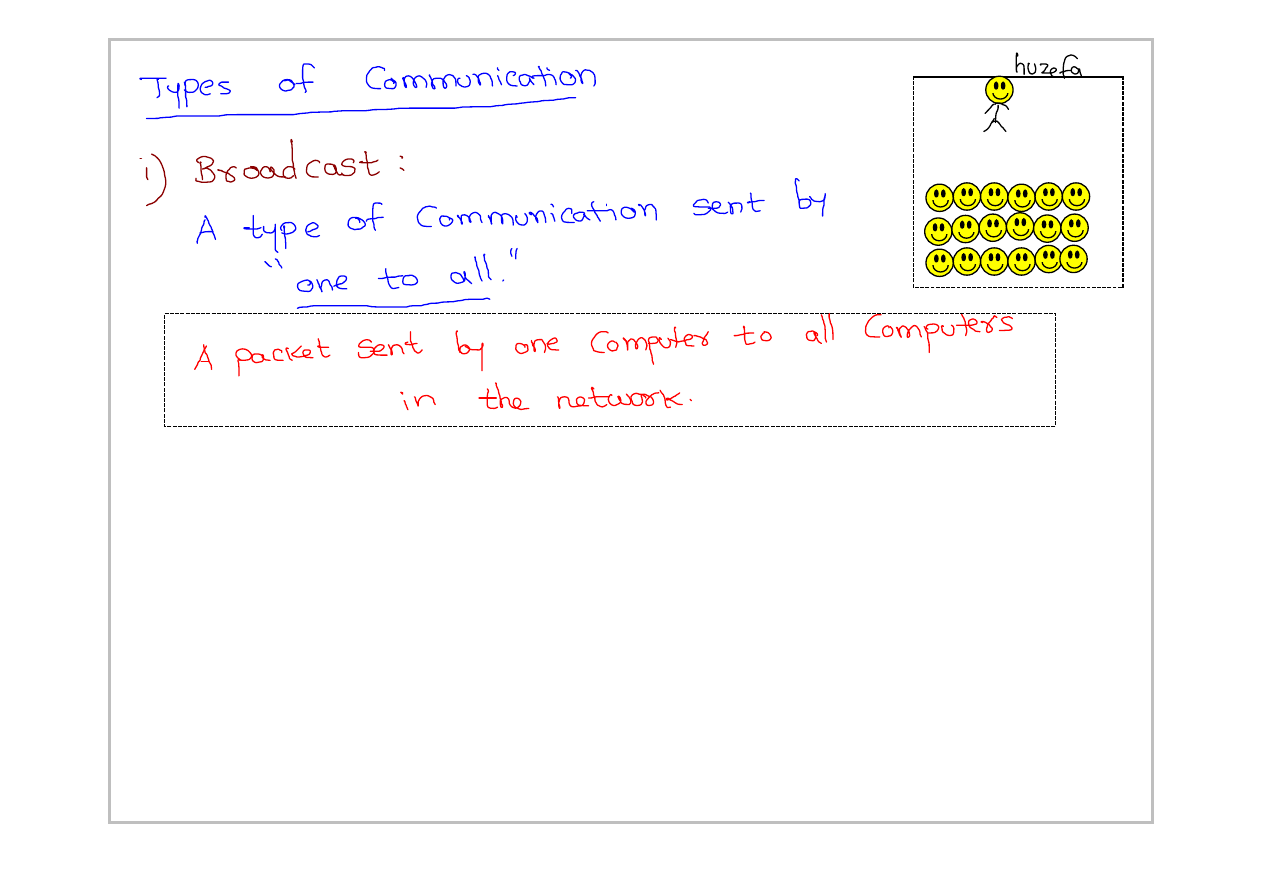 Types of Communication
huzefa
i) Broadcast :
A type of Communication sent by
"one to all."
A packet sent by one Computer to all Computers
in the network.